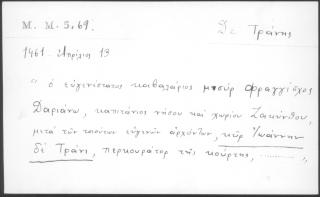 M. M. 5, 69.
Δε Τράνης
1461 - Ἀπρίλιος 13
" ὁ εὐγενέστατος καβαλάριος μισὲρ Φραγγίσκος
Δαριάνω, καπιτάνιος νήσου καὶ χωρίου Ζακύνθου,
μετὰ τῶν τοιούτων εὐγενῶν ἀρχόντων, κὺρ Ἰωάννην
δὲ Τράνι, περκουράτορ τῆς κούρτης, .......... „